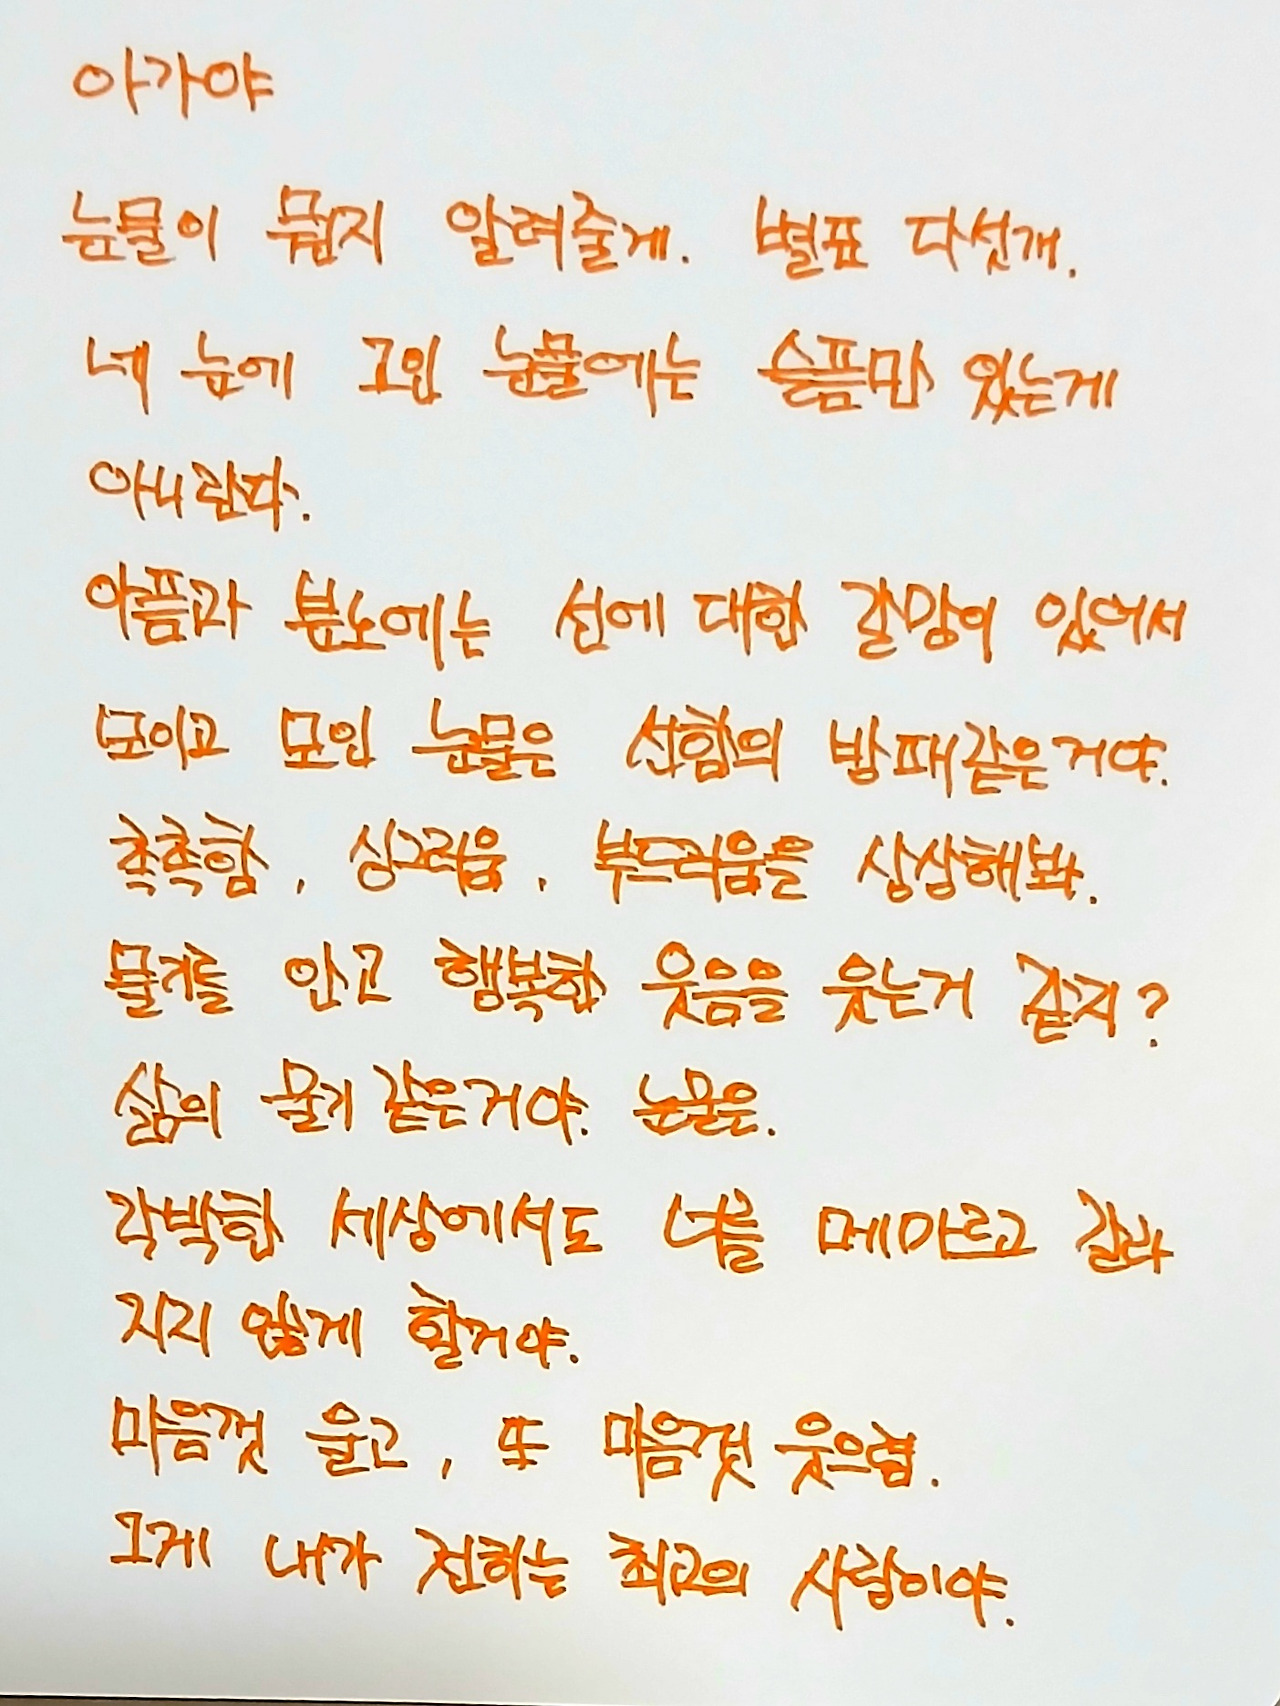 아가야
눈물이 뭔지 알려줄게. 별표 다섯개.
네 눈에 고인 눈물에는 슬픔만 있는게
아니란다.
아픔과 분노에는 선에 대한 갈망이 있어서
모이고 모인 눈물은 선함의 방패같은거야.
촉촉함, 싱그러움, 부드러움을 상상해봐.
물기를 안고 행복한 웃음을 웃는거 같지?
삶의 물기 같은거야. 눈물은.
각박한 세상에서도 너를 메마르고 갈라
지지 않게 할거야.
마음껏 울고, 또 마음껏 웃으렴.
그게 내가 전하는 최고의 사랑이야.